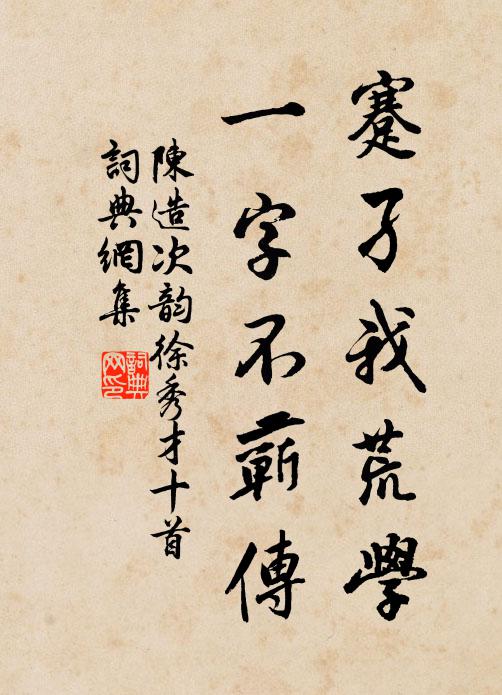 蹇孑我荒學
一字不蘄傳
陳造次韵徐秀才十首
詞典網集
詞典网印